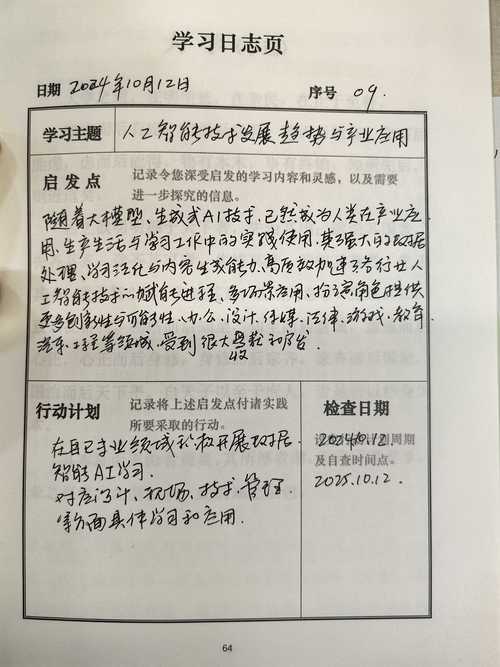 学习日志页
日期 2024年10月12日 序号 09.
学习主题 人工智能技术发展趋势与产业应用
启发点 记录令您深受启发的学习内容和灵感，以及需要
进一步探究的信息。
随着大模型、生成式AI技术，已然成为人类在产业应
用、生产生活与学习工作中的实践使用，其强大的数据
处理、学习活化与内容生成能力、高质效加速了各行业人
工智能技术的赋能进程，多场景应用，扮演角色提供
更多创新性与可能性，办公、设计、传媒、法律、游戏、教育
汽车、工程等领域，受到很大
收
行动计划 记录将上述启发点付诸实践
所要采取的行动。
检查日期
在自己专业领域积极开展数据
智能AI学习.
对应设计、现场、技术、管理
等方面具体学习和应用.
周期
及自查时间点。
2024.10.12.
2025.10.12.
64